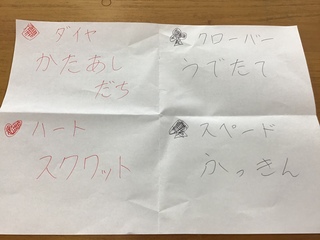 ダイヤ
かたあし
だち
クローバー
うでたて
ハート
スクワット
スペード
ふっきん